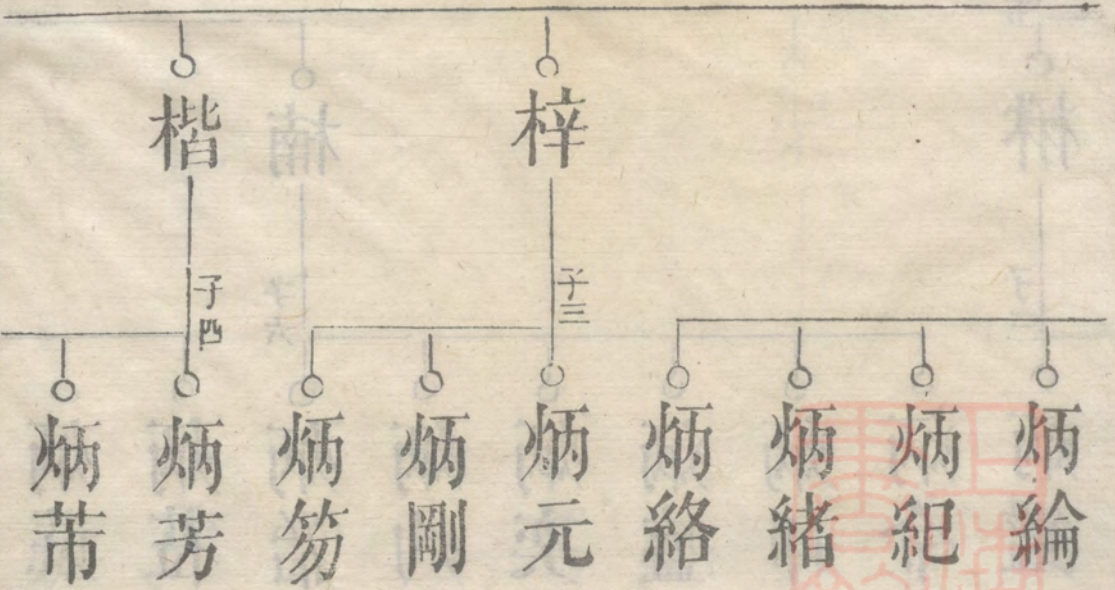 梓
子三
楷
子四
炳綸
炳紀
炳緒
炳絡
炳元
炳剛
炳笏
炳芳
炳芾